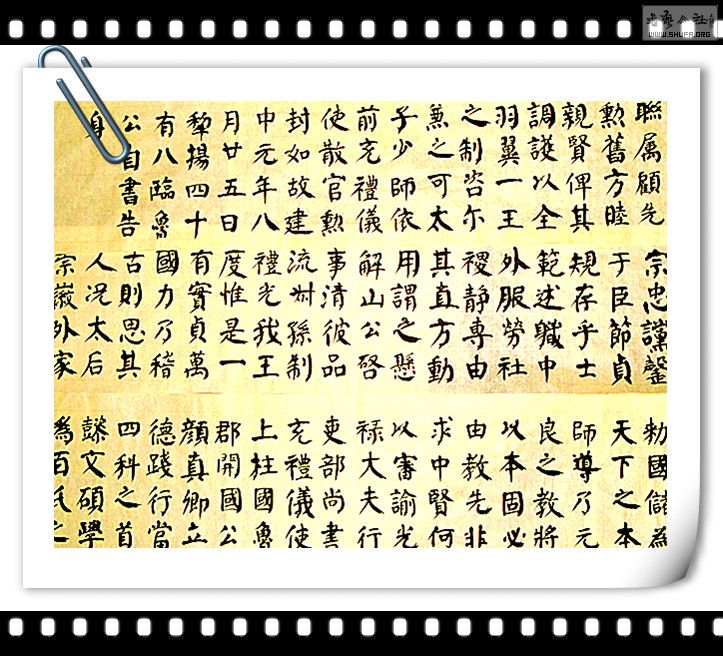 书艺公社
WWW.SHUFA.ORG
聯属顧先
勲舊方睦
親賢俾其
調護以全
羽翼一王
之制咨尔
兼之可太
子少師依
前充禮儀
使散官勲
封如故建
中元年八
月廿五日
犂揚四十
有八臨魯
公自書告
身
宗忠讜罄
于臣節貞
規存乎士
範述職中
外服勞社
稷靜専由
其直方動
用謂之懸
解山公啓
事清彼品
流叔孫制
禮光我王
度惟是一
有實貞萬
國力乃稽
古則思其
人況太后
崇徽外家
勑國儲為
天下之本
師導乃元
良之教將
以本固必
由教先非
求中賢何
以審諭光
祿大夫行
吏部尚書
充禮儀使
上柱國魯
郡開國公
顔真卿立
德踐行當
四科之首
懿文碩學
為百氏之